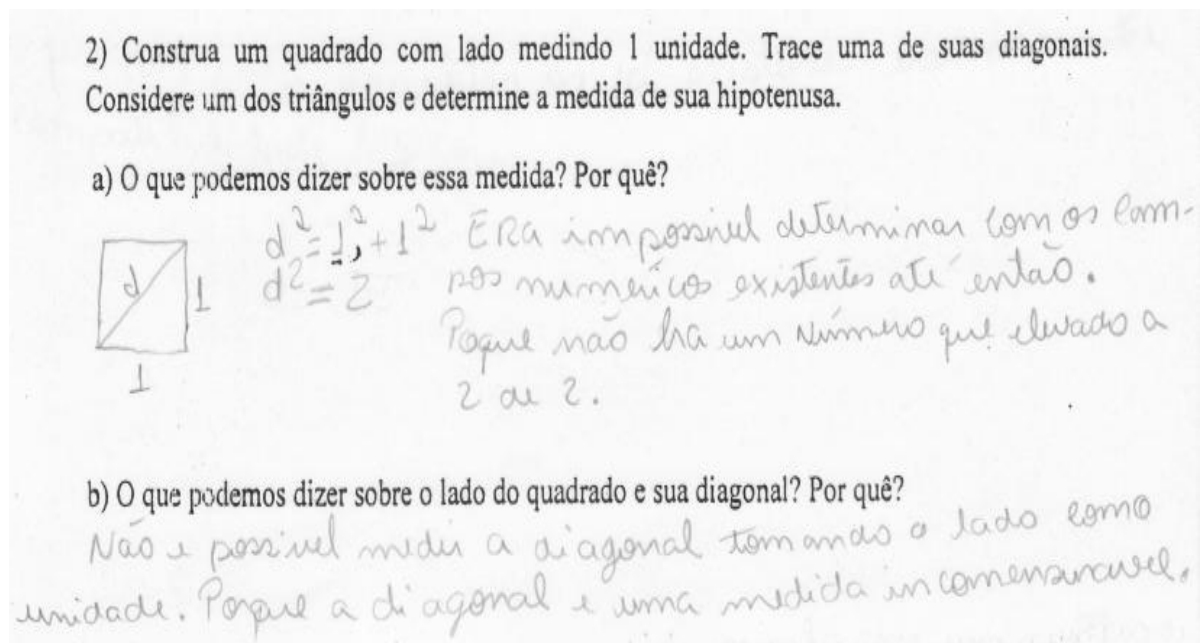 2) Construa um quadrado com lado medindo 1 unidade. Trace uma de suas diagonais.
Considere um dos triângulos e determine a medida de sua hipotenusa.
a) O que podemos dizer sobre essa medida? Por quê?
d² = 1² + 1² ERA impossivel determinar com os cam-
d² = 2 pos numéricos existentes até então.
d 1 Poque não ha um número que elevado a
1 2 de 2.
b) O que podemos dizer sobre o lado do quadrado e sua diagonal? Por quê?
Não e possivel medir a diagonal tomando o lado como
unidade. Porque a diagonal e uma medida incomensuravel.